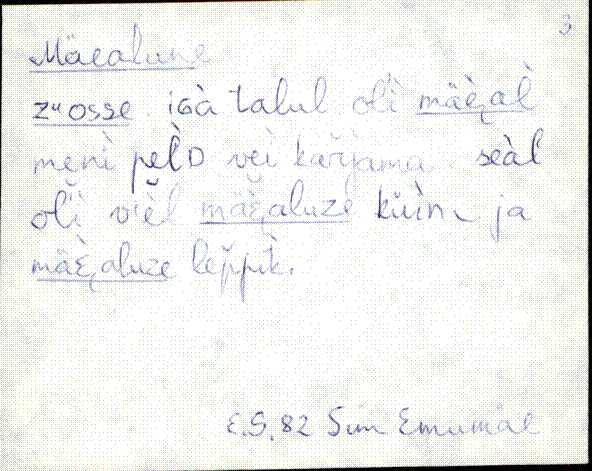 3
Mäealune
zᵘosse. iGà talul oľì mäèαľ
menì pèl̆D vèi kařjama. seàl
oľì viĕl mäèαluze küìn ja
mäèαluze lep̆pìk.
E.S. 82 Sim Emumäe